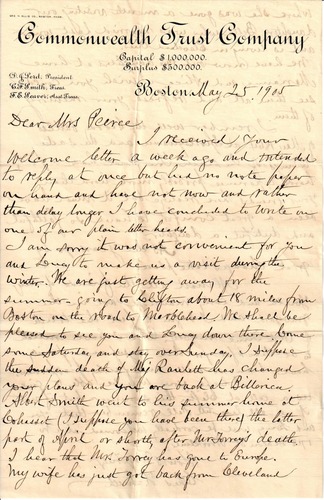 Commonwealth Trust Company
Capital $1,000,000.
Surplus $500,000.
President
C.F. Smith, Treas.
Boston May 25 1905
Dear Mrs Peirce
I received your
welcome letter a week ago and intended
to reply at once but had no note paper
on hand and have not now and rather
than delay longer I have concluded to write on
one of our plain letter heads.
I am sorry it was not convenient for you
and Lucy to make us a visit during the
winter. We are just getting away for the
summer going to Clifton about 18 miles from
Boston on the road to Marblehead. We shall be
pleased to see you and Lucy down there. Come
some Saturday and stay over Sunday. I suppose
the sudden death of Maj has changed
your plans and you are back at Billerica.
Albert Smith went to his summer home at
Cohasset (I suppose you have been there) the latter
part of April or shortly after Mr Torrey's death.
I hear that Mrs Torrey has gone to Europe.
My wife has just got back from Cleveland